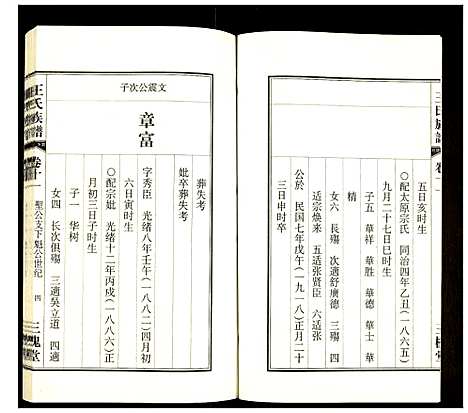 五日亥时生
○配太原宗氏 同治四年乙丑(一八六五)
九月二十七日巳时生
子五 華祥 華胜 華德 華士 華
精
女六 長殤 次適舒虞德 三殤 四
适宗焕来 五适张賢臣 六适张
公於 民国七年戊午(一九一八)二月二十
三日申时卒
葬失考
妣卒葬失考
文震公次子
章富
字秀臣 光绪八年壬午(一八八二)四月初
六日寅时生
○配宗妣 光绪十二年丙戌(一八八六)正
月初三日子时生
子一 华树
女四 长次俱殤 三適吴立道 四適
王氏族譜
卷十一
聖公支下魁公世纪
四
三槐堂